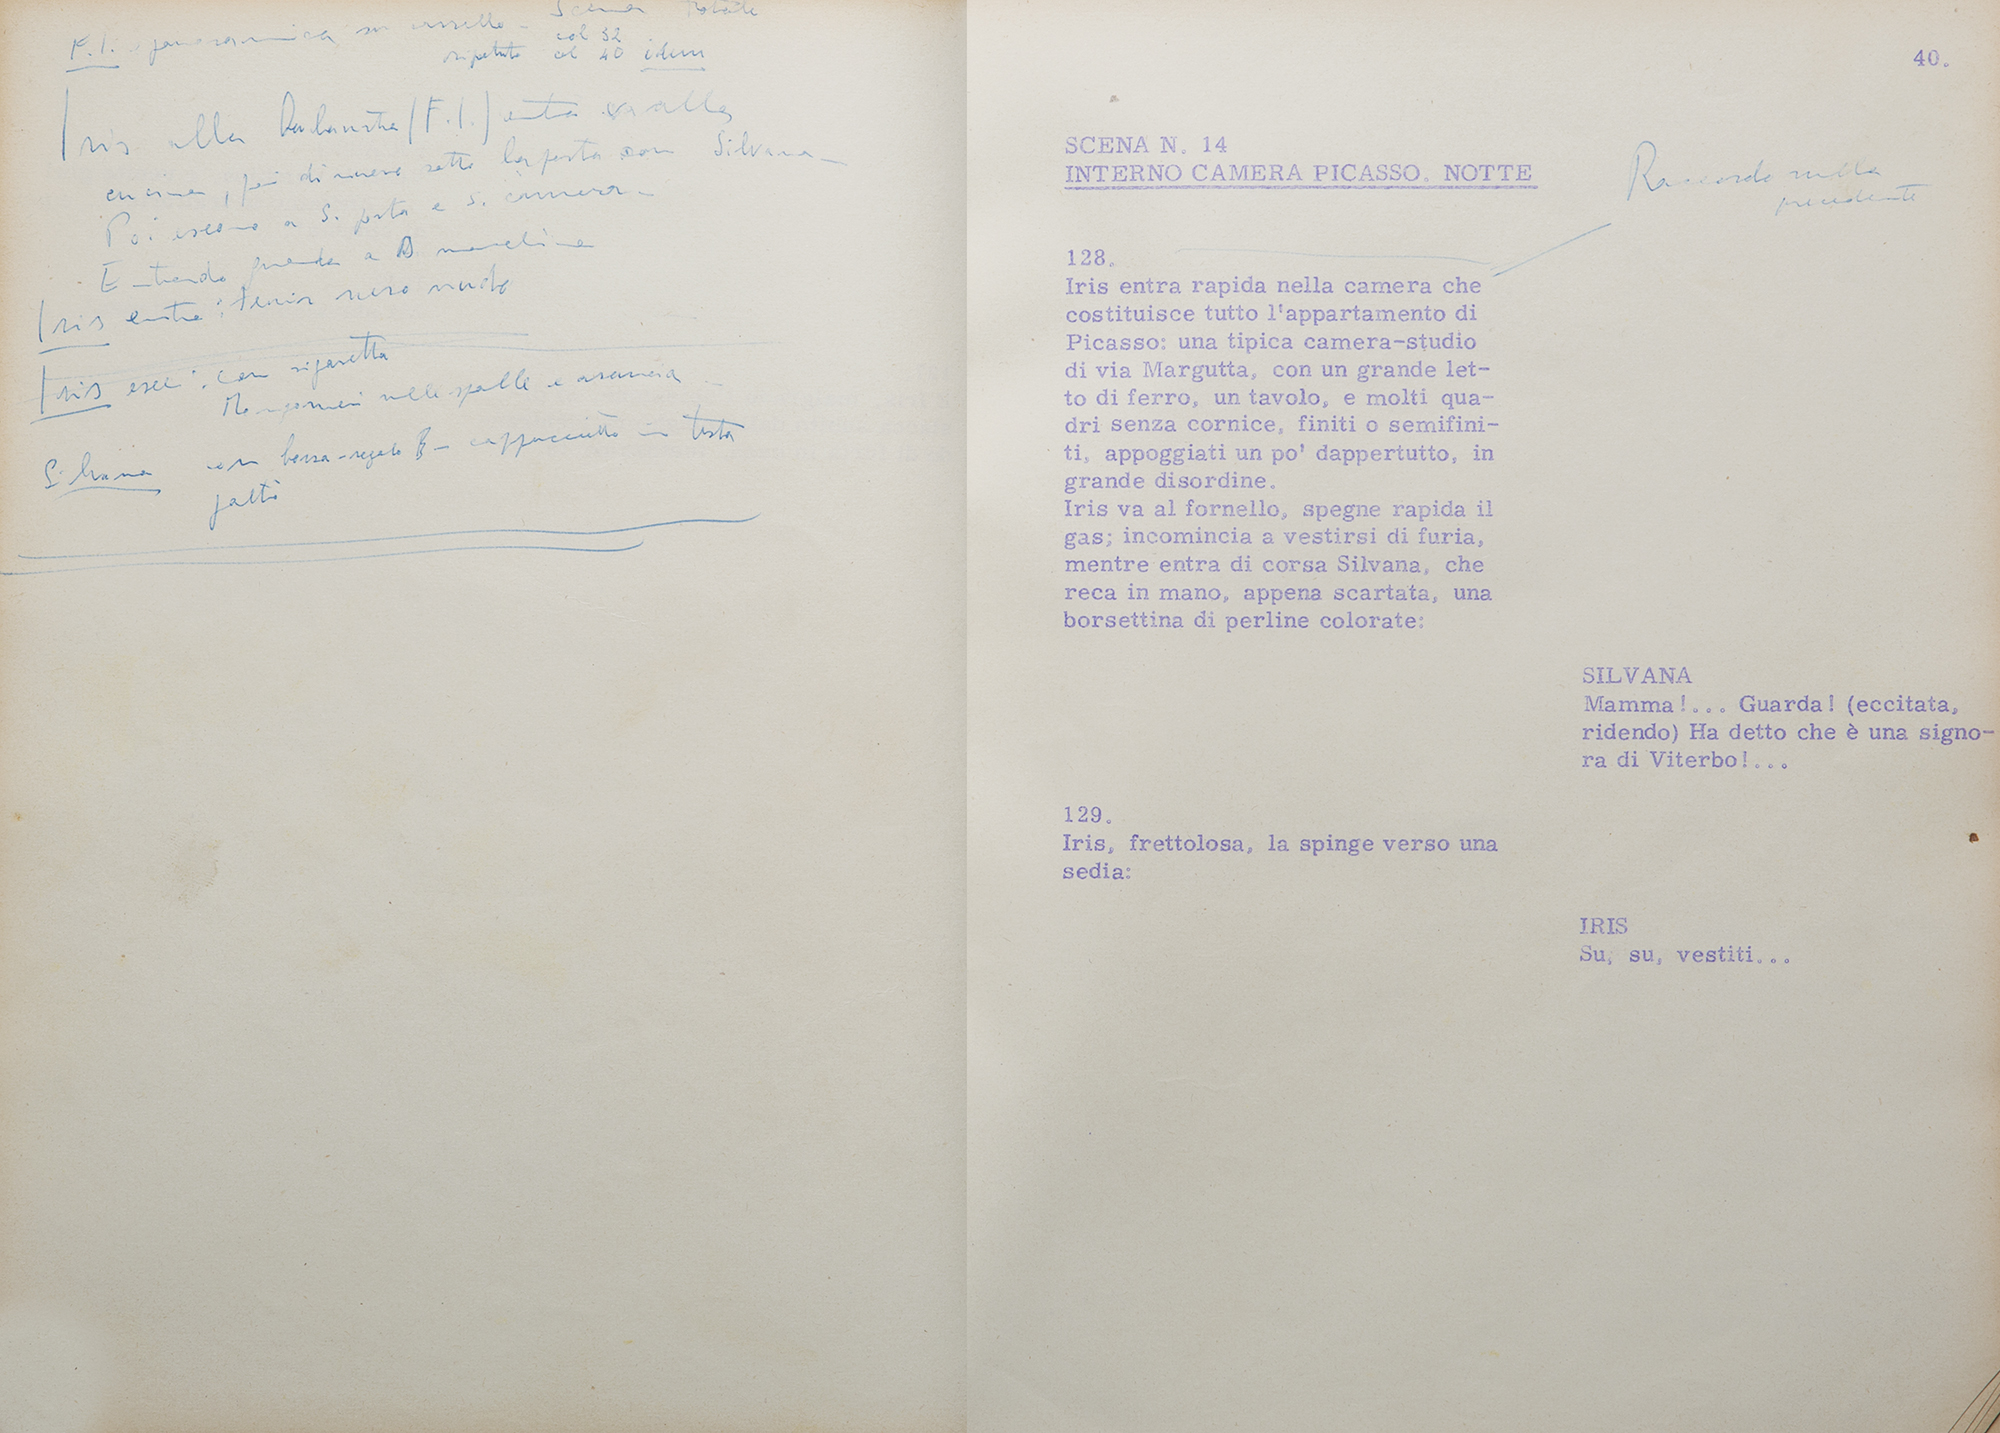 F.I. panoramica su
Scena Totale
col 52
ripetuto col 40 idem
Iris alla Balaustra (F.I.) entra
cucina, poi di nuovo sotto la porta con Silvana —
Poi escono a S. porta e S. camera —
Entrando guarda a D macchina
Iris entra: senza nudo
Iris esce: con sigaretta
nelle spalle e
Silvana con borsa-regalo — cappuccetto in testa
paltò
40.
SCENA N. 14
INTERNO CAMERA PICASSO. NOTTE
Raccordo sulla
precedente
128.
Iris entra rapida nella camera che
costituisce tutto l'appartamento di
Picasso: una tipica camera-studio
di via Margutta, con un grande let-
to di ferro, un tavolo, e molti qua-
dri senza cornice, finiti o semifini-
ti, appoggiati un po' dappertutto, in
grande disordine.
Iris va al fornello, spegne rapida il
gas; incomincia a vestirsi di furia,
mentre entra di corsa Silvana, che
reca in mano, appena scartata, una
borsettina di perline colorate:
SILVANA
Mamma!... Guarda! (eccitata,
ridendo) Ha detto che è una signo-
ra di Viterbo!...
129.
Iris, frettolosa, la spinge verso una
sedia:
IRIS
Su, su, vestiti...